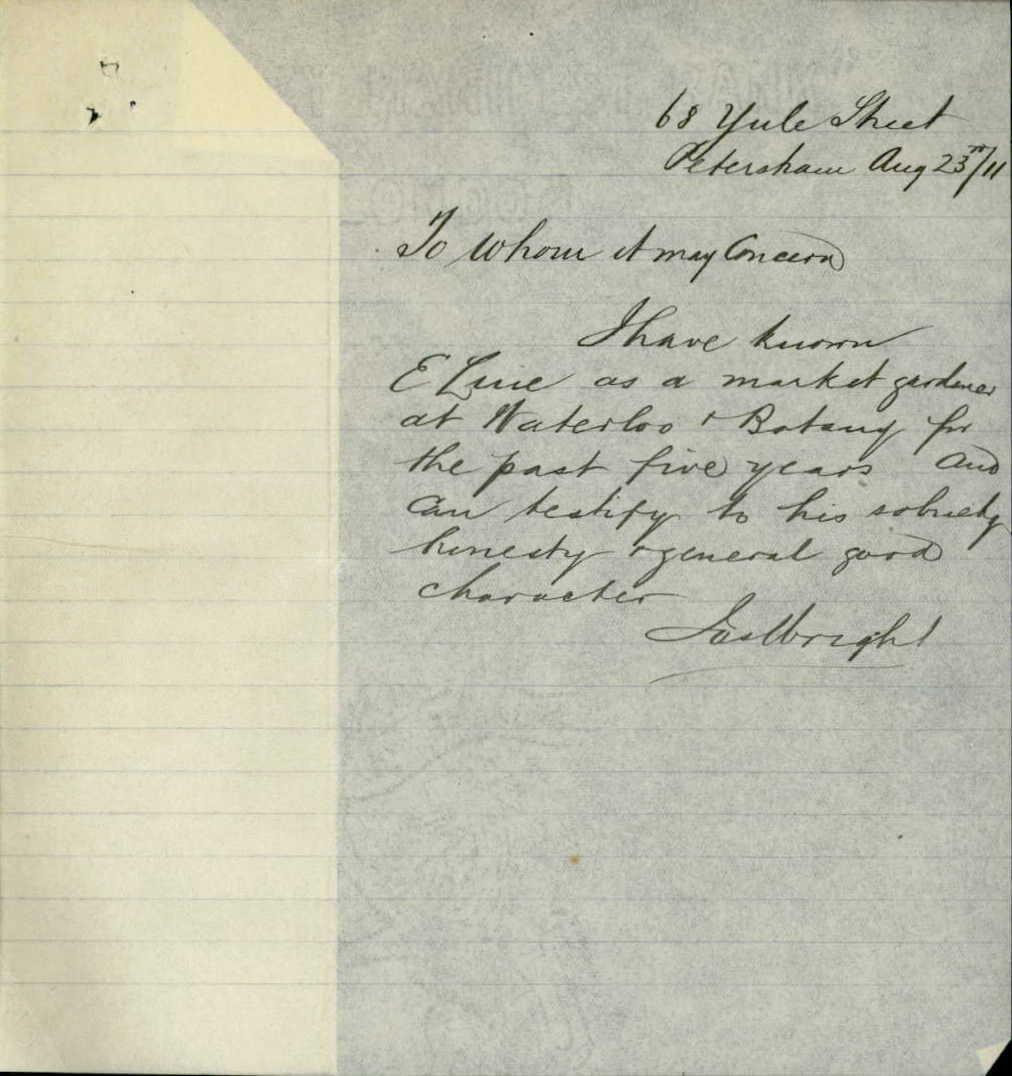 68 Yule Street
Petersham Aug 23rd/11
To Whom it may Concern
I have known
E Line as a market gardener
at Waterloo & Botany for
the past five years and
can testify to his sobriety
honesty & general good
character
Jas Wright